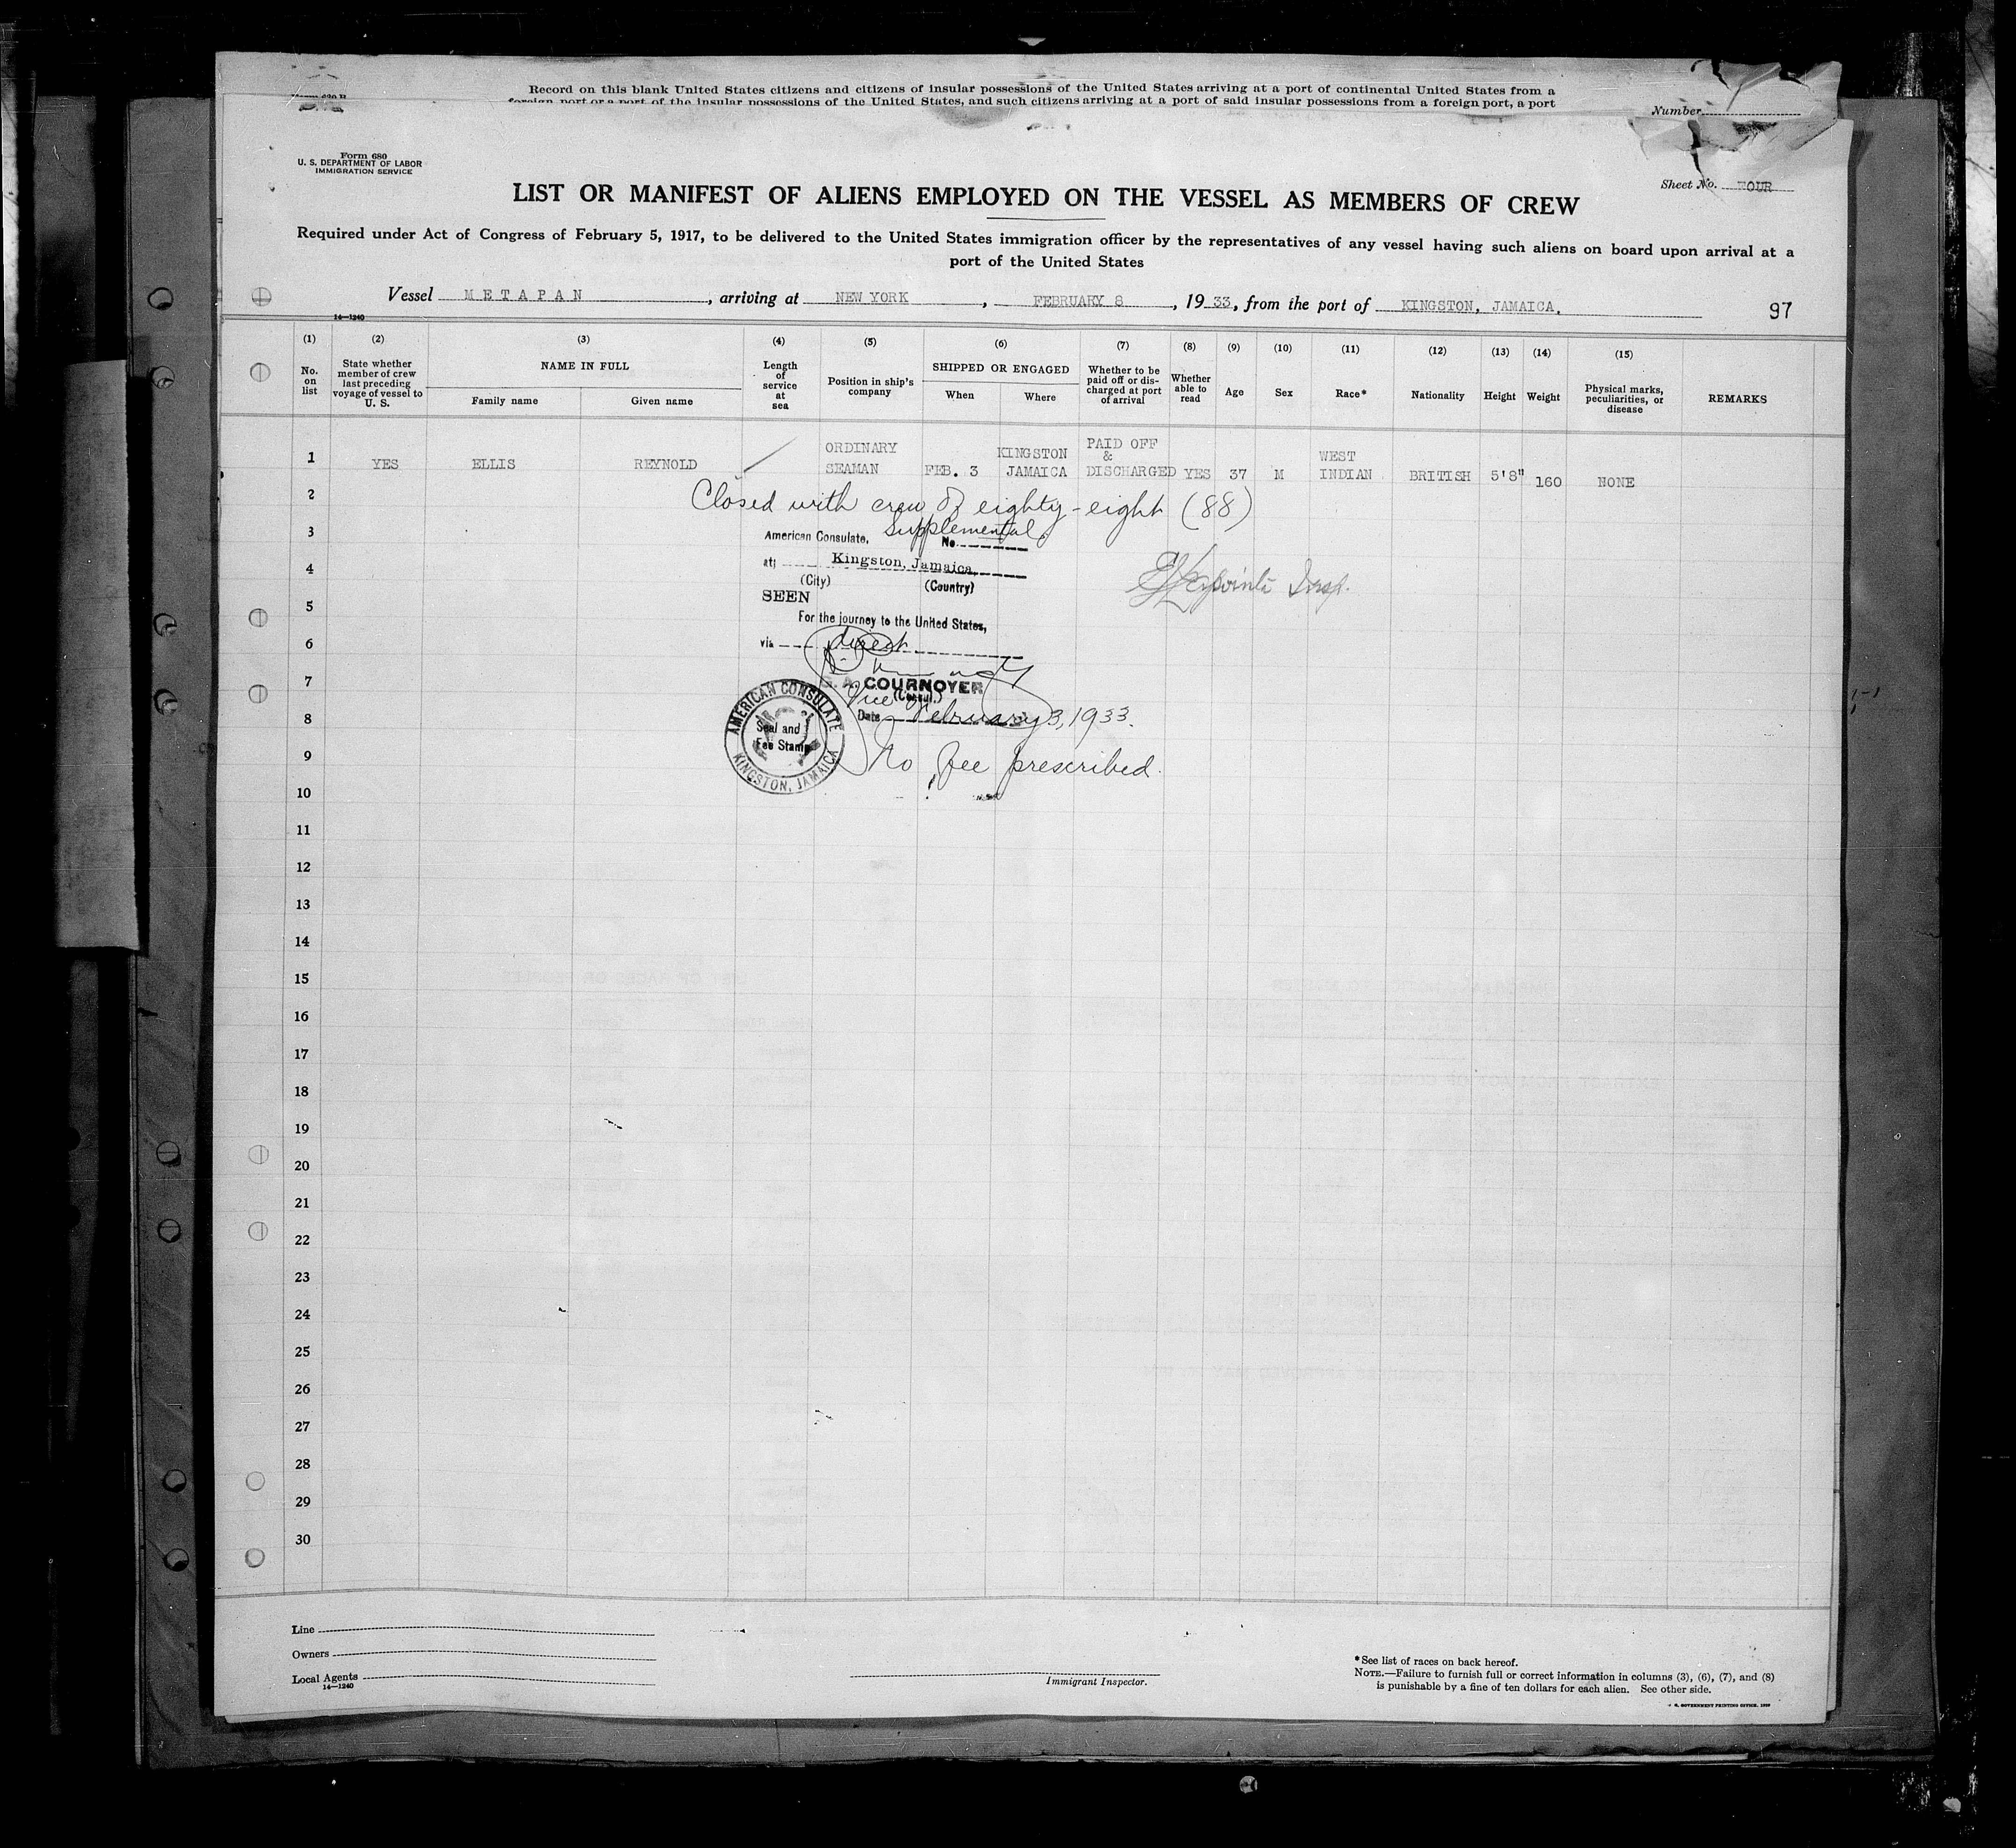 Record on this blank United States citizens and citizens of insular possessions of the United States arriving at a port of continental United States from a
foreign port or a port of the insular possessions of the United States, and such citizens arriving at a port of said insular possessions from a foreign port, a port
Number
Form 680
U. S. DEPARTMENT OF LABOR
IMMIGRATION SERVICE
Sheet No. FOUR
LIST OR MANIFEST OF ALIENS EMPLOYED ON THE VESSEL AS MEMBERS OF CREW
Required under Act of Congress of February 5, 1917, to be delivered to the United States immigration officer by the representatives of any vessel having such aliens on board upon arrival at a
port of the United States
Vessel METAPAN, arriving at NEW YORK, FEBRUARY 8, 1933, from the port of KINGSTON, JAMAICA.
97
14—1240
(1) (2) (3) (4) (5) (6) (7) (8) (9) (10) (11) (12) (13) (14) (15)
No. on list
State whether member of crew last preceding voyage of vessel to U. S.
NAME IN FULL
Family name
Given name
Length of service at sea
Position in ship's company
SHIPPED OR ENGAGED
When
Where
Whether to be paid off or discharged at port of arrival
Whether able to read
Age
Sex
Race*
Nationality
Height
Weight
Physical marks, peculiarities, or disease
REMARKS
1 YES ELLIS REYNOLD ORDINARY SEAMAN FEB. 3 KINGSTON JAMAICA PAID OFF & DISCHARGED YES 37 M WEST INDIAN BRITISH 5'8" 160 NONE
2
Closed with crew of eighty-eight (88)
Supplemental
3
American Consulate, No.
4
at Kingston, Jamaica
(City) (Country)
SEEN
5
For the journey to the United States,
6
via direct
7
COURNOYER
Vice (Consul)
8
Date February 3, 1933.
AMERICAN CONSULATE
Seal and
Fee Stamp
KINGSTON, JAMAICA
9
No fee prescribed.
10
11
12
13
14
15
16
17
18
19
20
21
22
23
24
25
26
27
28
29
30
Line
Owners
Local Agents
14—1240
Immigrant Inspector.
*See list of races on back hereof.
NOTE.—Failure to furnish full or correct information in columns (3), (6), (7), and (8)
is punishable by a fine of ten dollars for each alien. See other side.